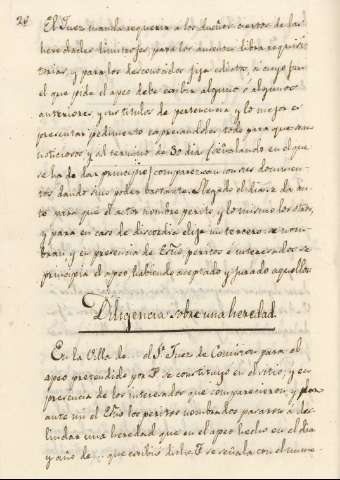 28
El Juez manda requerir a los dueños ciertos de las
heredades limitrofes, para los ausentes libra requisi-
torias, y para los desconocidos fija edictos, a cuyo fin
el que pide el apeo debe exibir alguno o algunos
anteriores, y sus titulos de pertenencia, y lo mejor es
presentar pedimento expresandolos todo para que sean
noticiosos y al termino de 30 dias (señalando en el que
se ha de dar principio) comparezcan con sus documen-
tos, dando sino poder bastante. Llegado el dia se da au-
to para que el actor nombre perito, y lo mismo los otros,
y para en caso de discordia elija un tercero: se nom-
bran, y en presencia de Esño, peritos e interesados se
principia el apeo habiendo aceptado y jurado aquellos
Diligencia sobre una heredad.
En la Villa de ... el Sr. Juez de Comision para el
apeo pretendido por P. se constituyo en el sitio, y en
presencia de los interesados que comparecieron, y por
ante mi el Esño los peritos nombrados pasaron a des-
lindar una heredad que en el apeo hecho en el dia
y año de ... que exibió dicho P. se señala con el nume-